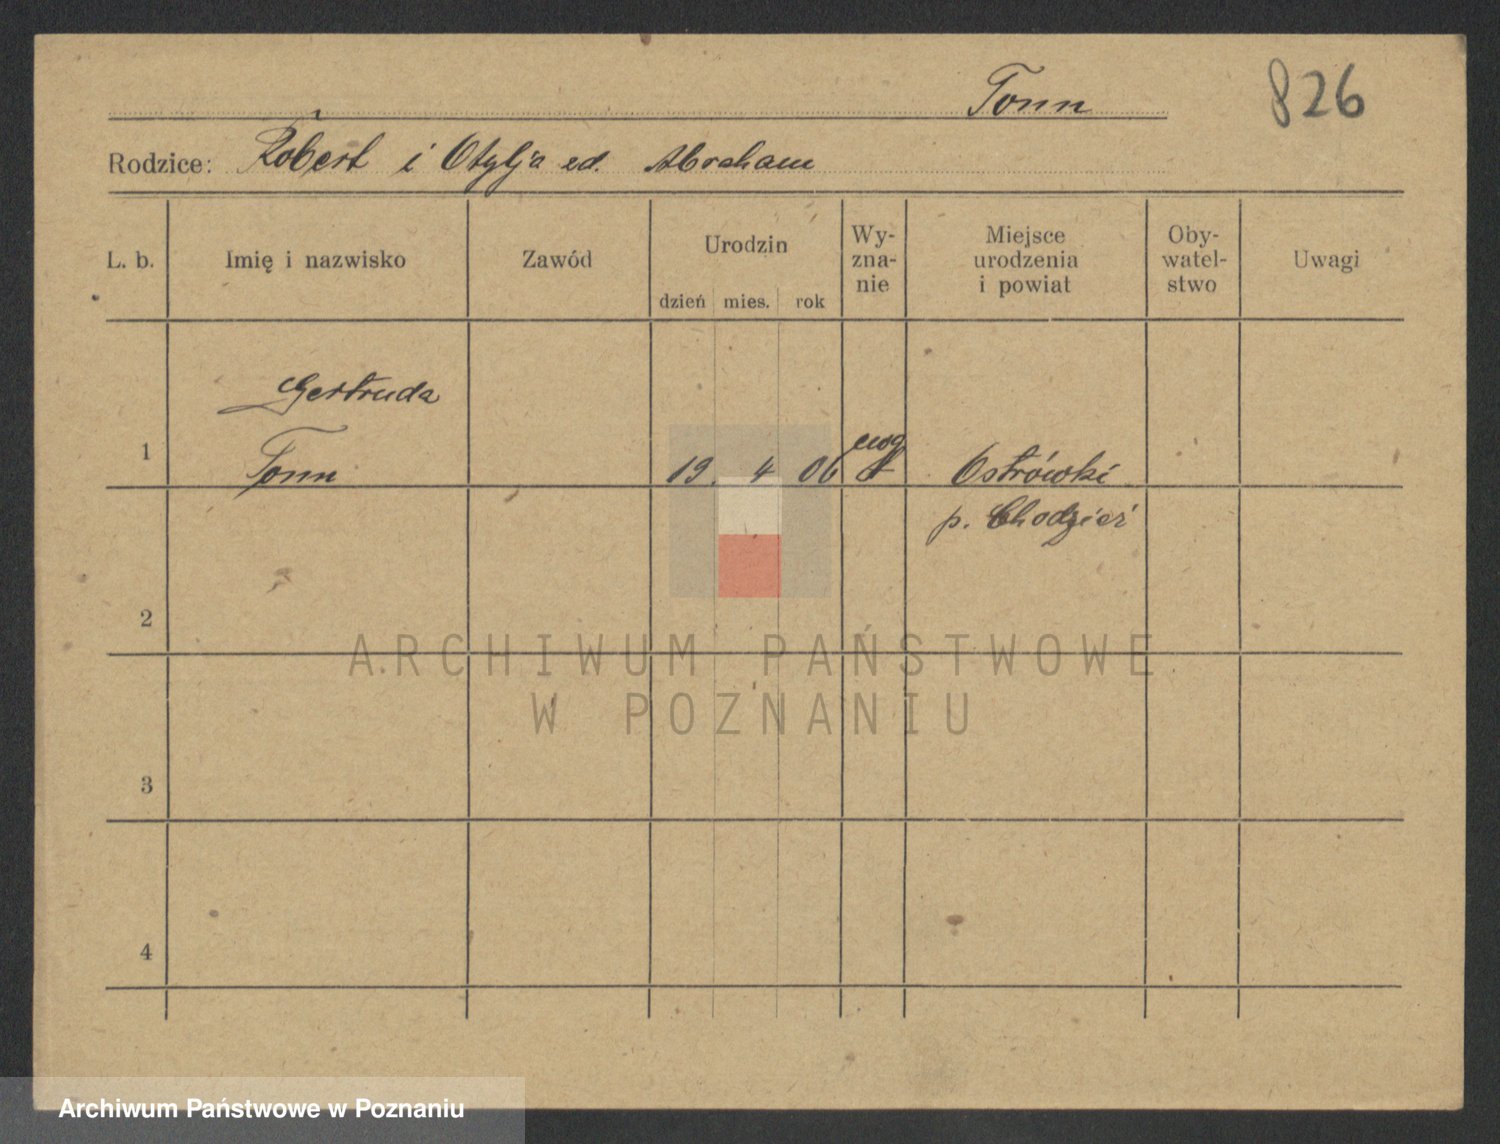 Tonn
826
Rodzice: Robert i Otylja ed. Abraham
L. b. Imię i nazwisko Zawód Urodzin dzień mies. rok Wy-zna-nie Miejsce urodzenia i powiat Oby-watel-stwo Uwagi
Gertruda
1 Tonn 19. 4 06 ewg Ostrówki
p. Chodzież
2
ARCHIWUM PAŃSTWOWE
W POZNANIU
3
4
Archiwum Państwowe w Poznaniu